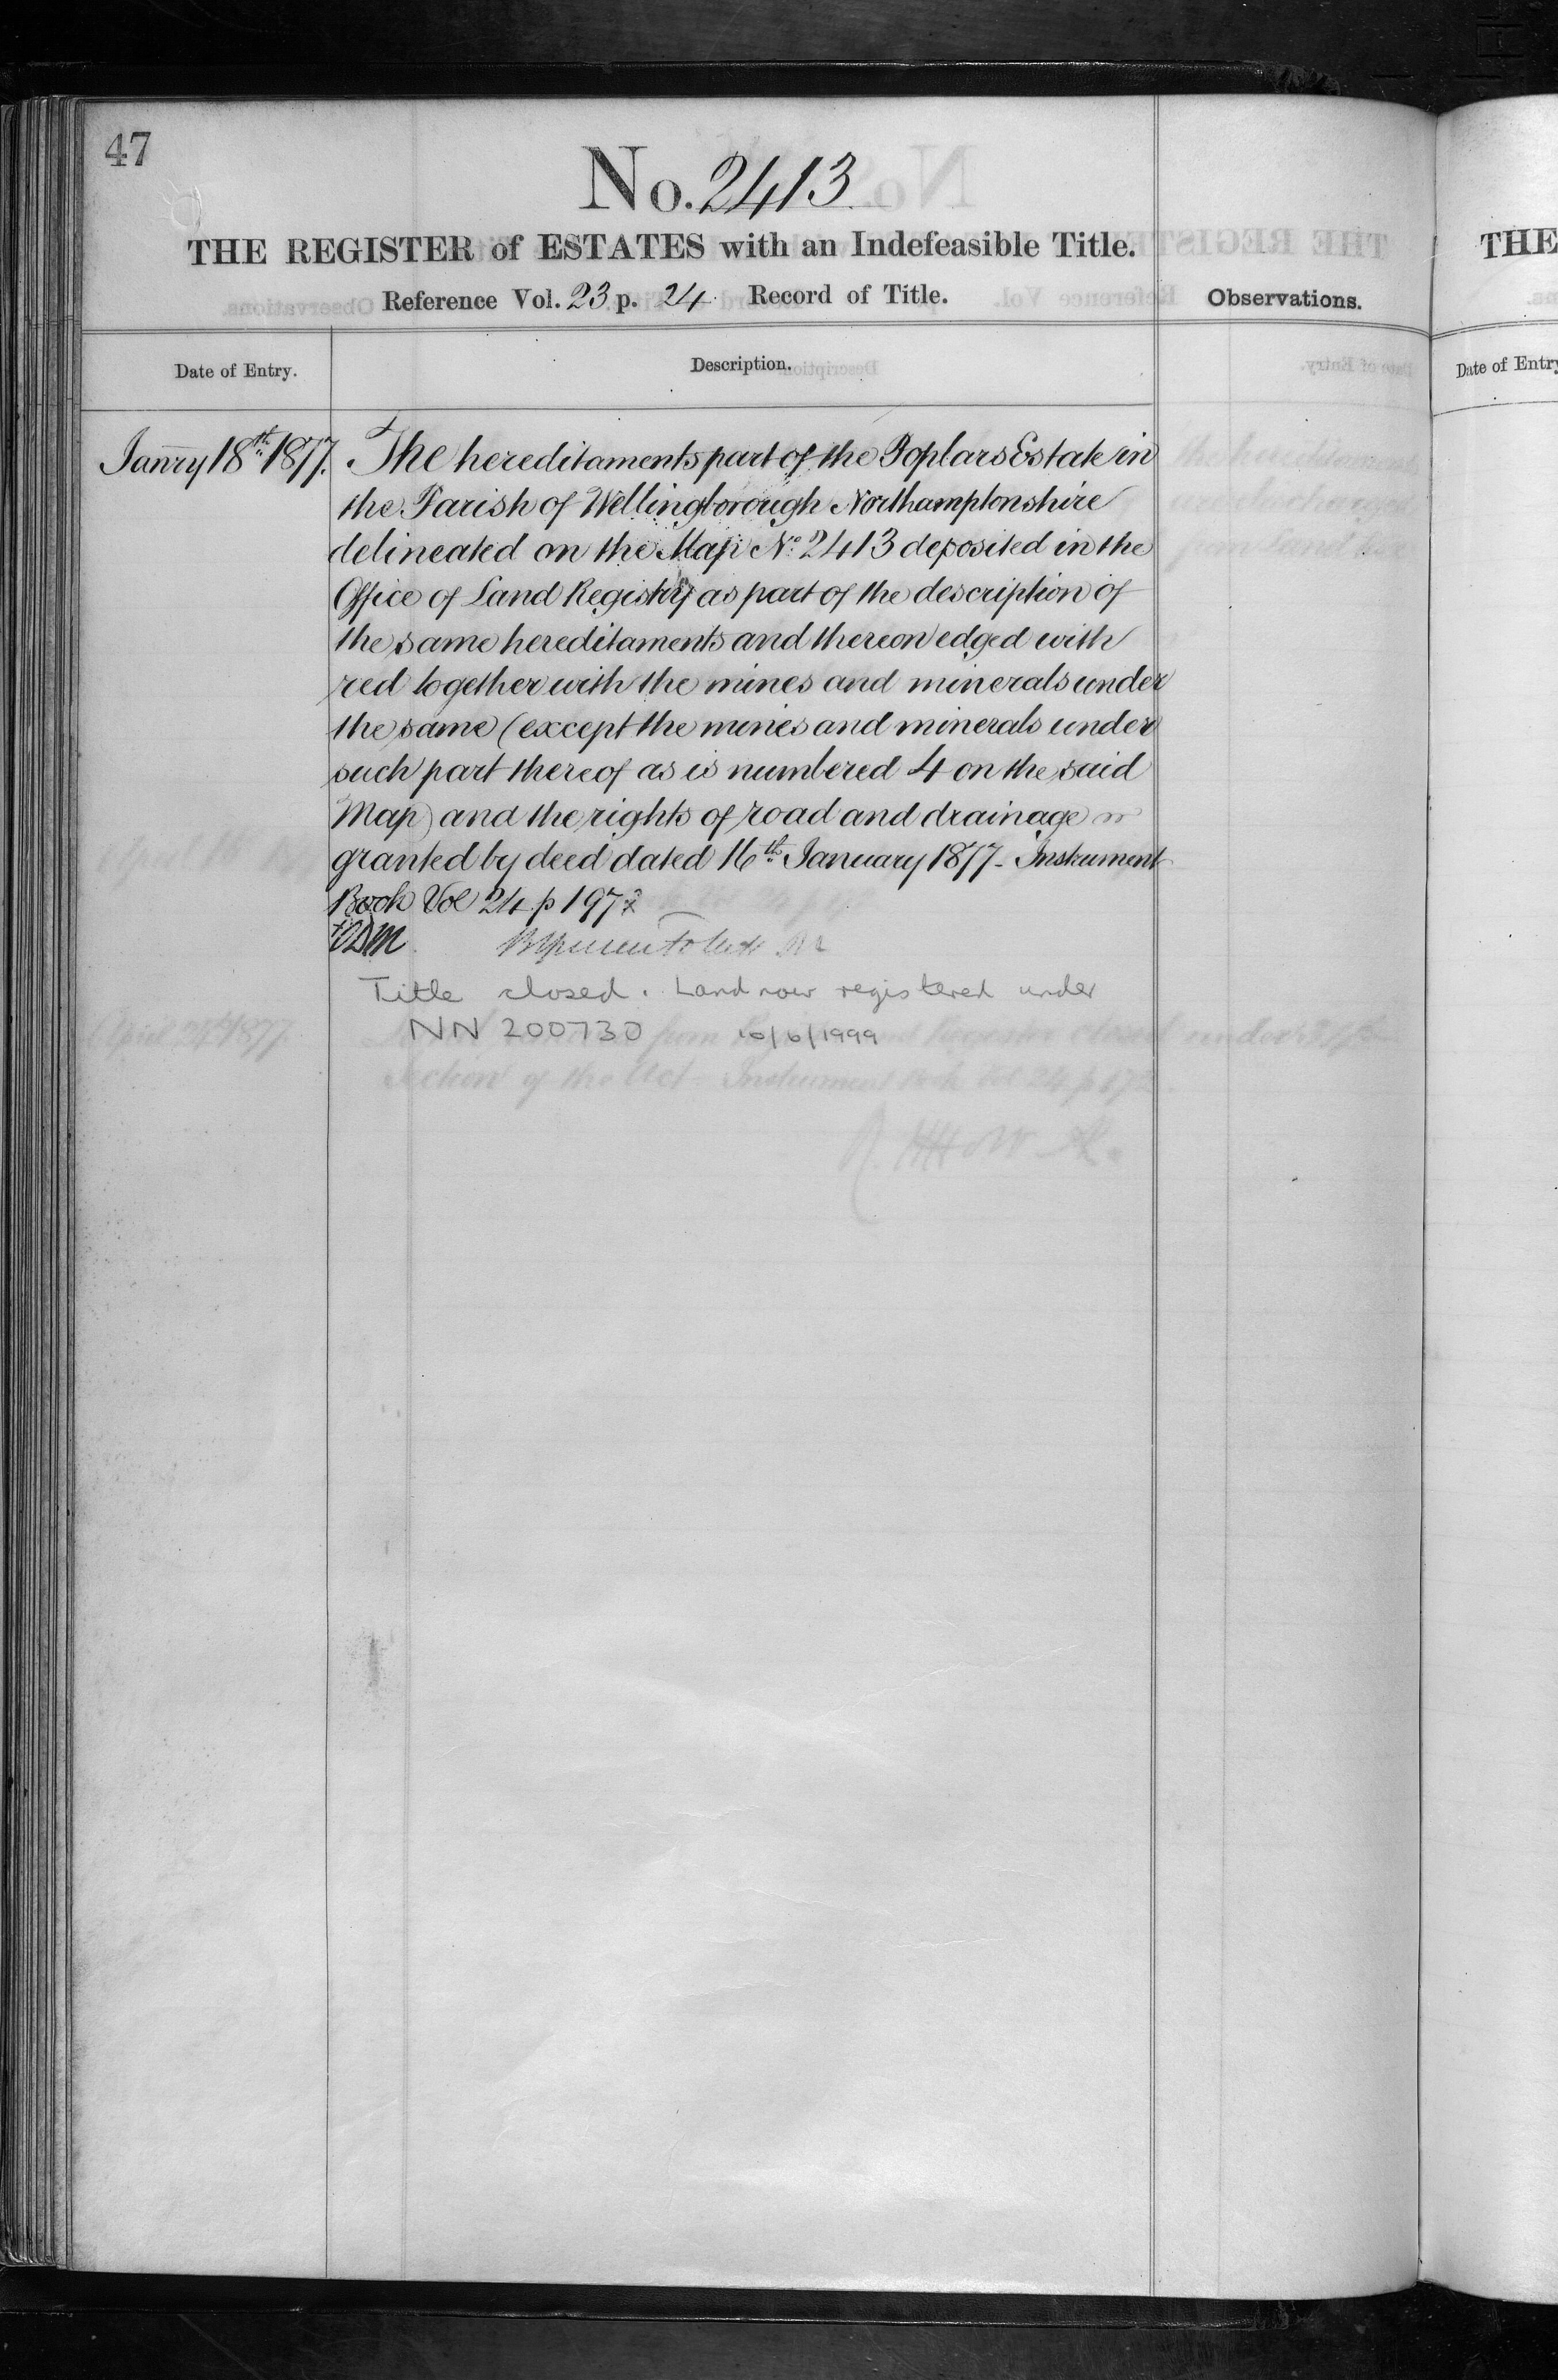 47
No. 2413
THE REGISTER of ESTATES with an Indefeasible Title.
Reference Vol. 23 p. 24 Record of Title.
Observations.
Date of Entry.
Description.
Janry 18th 1877.
The hereditaments part of the Poplars Estate in
the Parish of Wellingborough Northamptonshire
delineated on the Map No. 2413 deposited in the
Office of Land Registry as part of the description of
the same hereditaments and thereon edged with
red together with the mines and minerals under
the same (except the mines and minerals under
such part thereof as is numbered 4 on the said
Map) and the rights of road and drainage
granted by deed dated 16th January 1877 - Instrument
Book Vol 24 p 197
Title closed. Land now registered under
NN 200730 10/6/1999
THE
Date of Entry